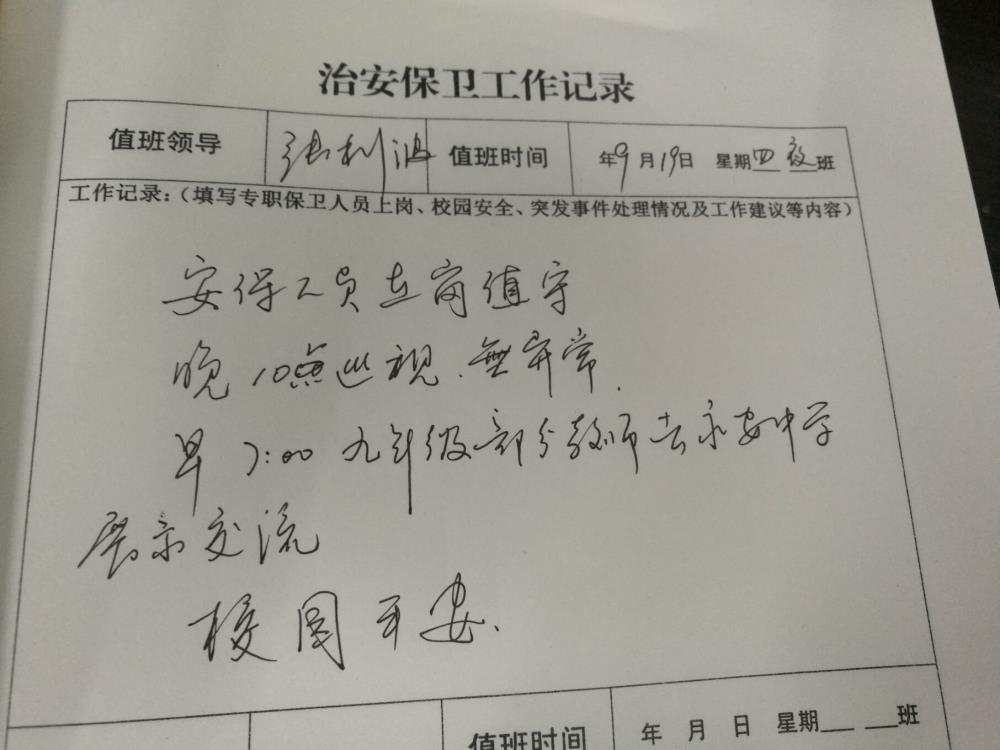 治安保卫工作记录
值班领导 张利波 值班时间 年9月19日 星期四 夜班
工作记录：（填写专职保卫人员上岗、校园安全、突发事件处理情况及工作建议等内容）
安保人员在岗值守
晚10点巡视.無异常.
早7:00九年级部分教师去永安中学
展示交流
校园平安.
值班时间 年 月 日 星期___ ___班